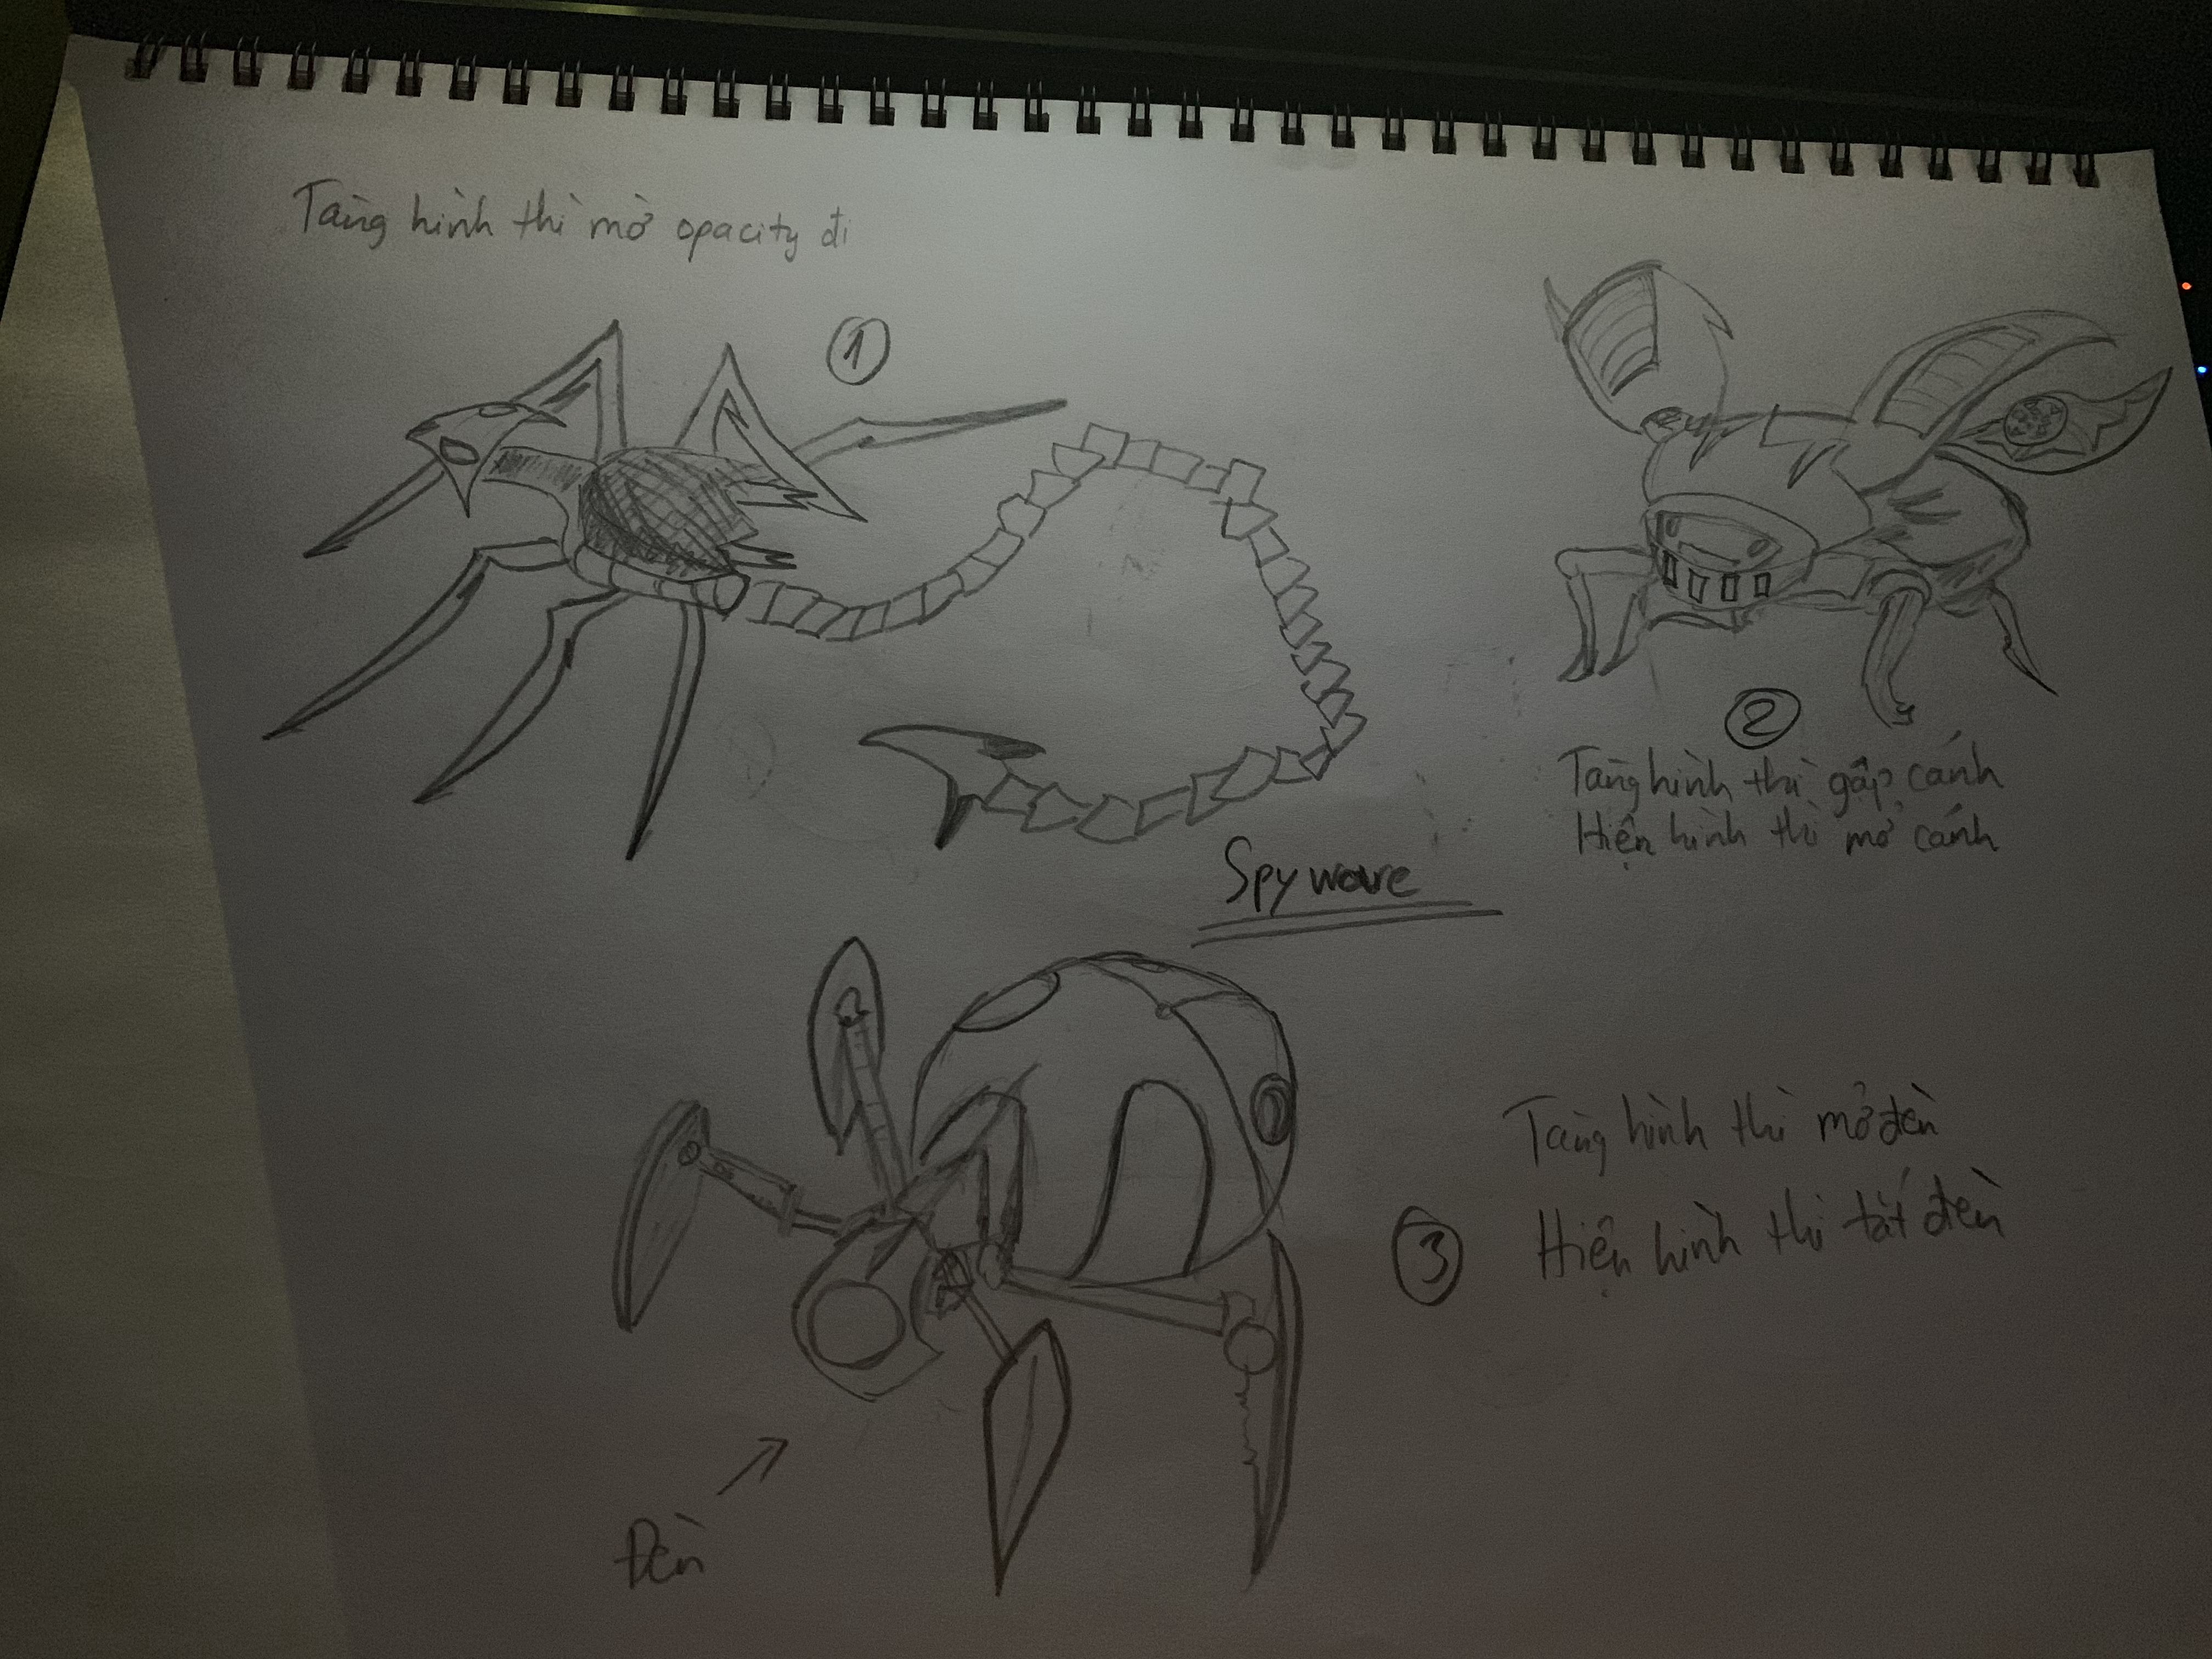 Tàng hình thì mờ opacity đi
1
2
Tàng hình thì gập cánh
Hiện hình thì mở cánh
Spyware
Tàng hình thì mở đèn
3
Hiện hình thì tắt đèn
Đèn